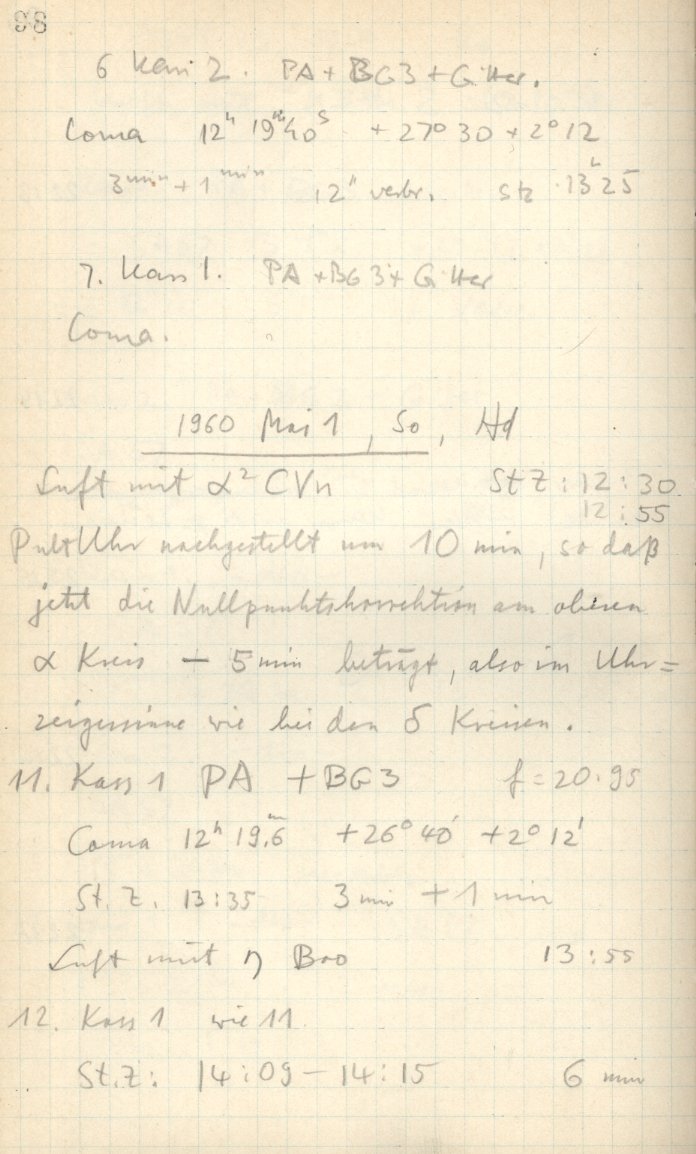 98
6 Kass 2. PA + BG3 + Gitter.
Coma 12h 19m 40s +27° 30 +2° 12
3min + 1min 12" verbr. Stz 13h 25
7. Kass 1. PA + BG3 + Gitter
Coma.
1960 Mai 1, So, Hd
Luft mit α² CVn StZ: 12:30
12:55
Pult Uhr nachgestellt um 10 min, so daß
jetzt die Nullpunktskorrektion am oberen
α Kreis – 5 min beträgt, also im Uhr=
zeigersinne wie bei den δ Kreisen.
11. Kass 1 PA + BG3 f = 20.95
Coma 12h 19.m6 +26° 40' +2° 12'
St. Z. 13:35 3 min + 1 min
Luft mit η Boo 13:55
12. Kass 1 wie 11
St.Z: 14:09 – 14:15 6 min